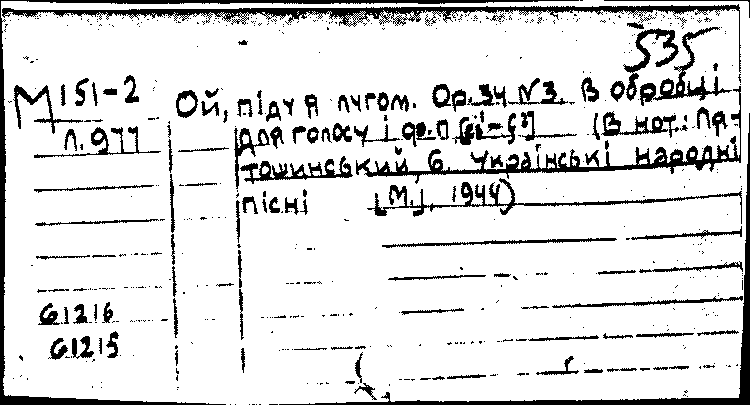 535
М 151-2
Л.977
Ой, піду я лугом. Ор.34 №3. В обробці
для голосу і ф.п.
(В нот.: Ля-
тошинський, Б. Українські народні
пісні [М.], 1944)
G1216
G1215